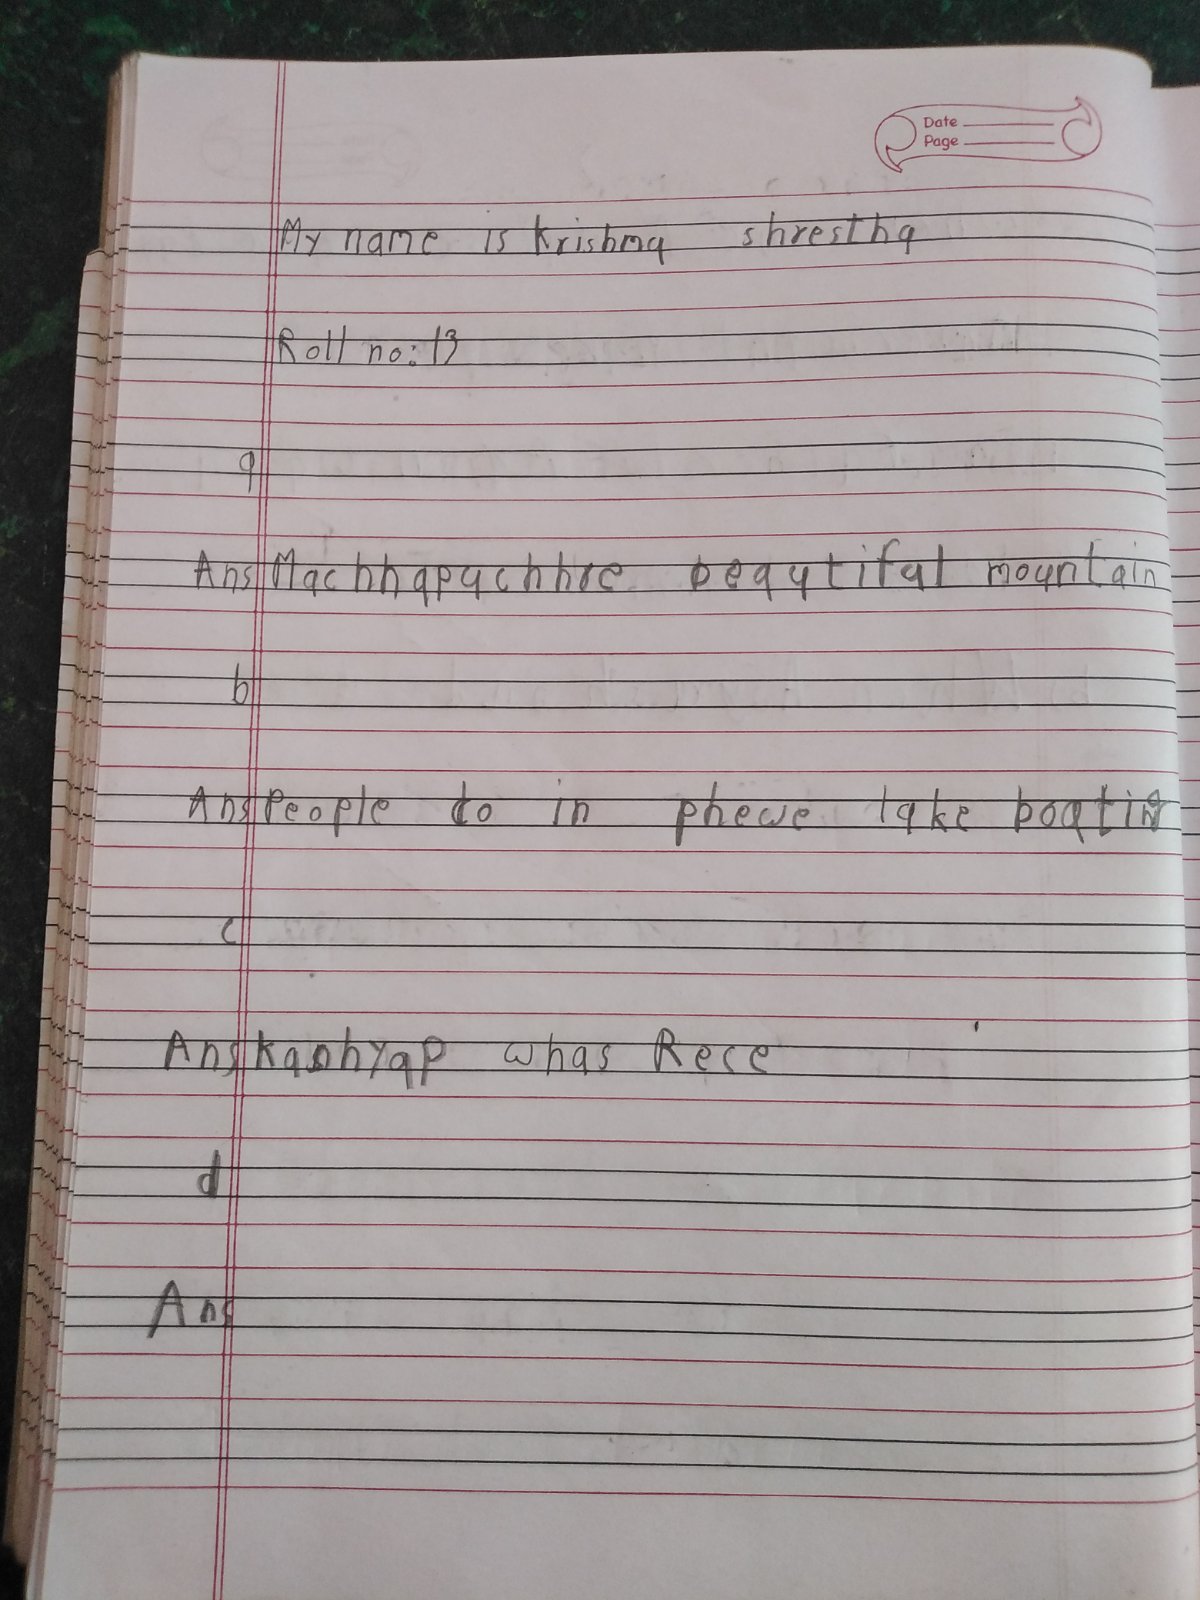 Date
Page
My name is Krishna shrestha
Roll no: 13
a
Ans Machhapuchhre beautifal mountain
b
Ans People do in phewe lake boatin
c
Ans kashyap whas Rece
d
Ans